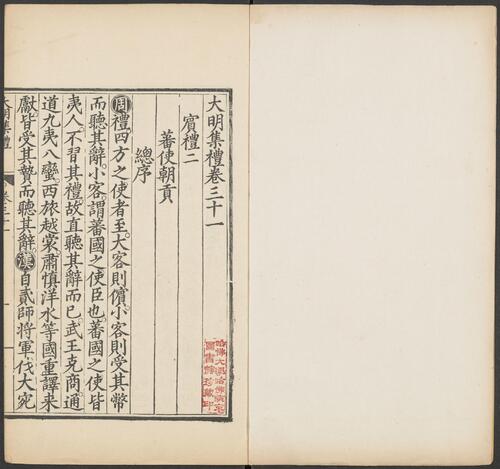 大明集禮卷三十一
賓禮二
蕃使朝貢
總序
周禮四方之使者至大客則儐小客則受其幣
而聽其辭小客謂蕃國之使臣也蕃國之使皆
夷人不習其禮故直聽其辭而已武王克商通
道九夷八蠻西旅越裳肅慎洋水等國重譯来
獻皆受其贄而聽其辭漢自貳師將軍伐大宛
大明集禮
卷三十一
哈佛大學哈佛燕京
圖書館珍藏印